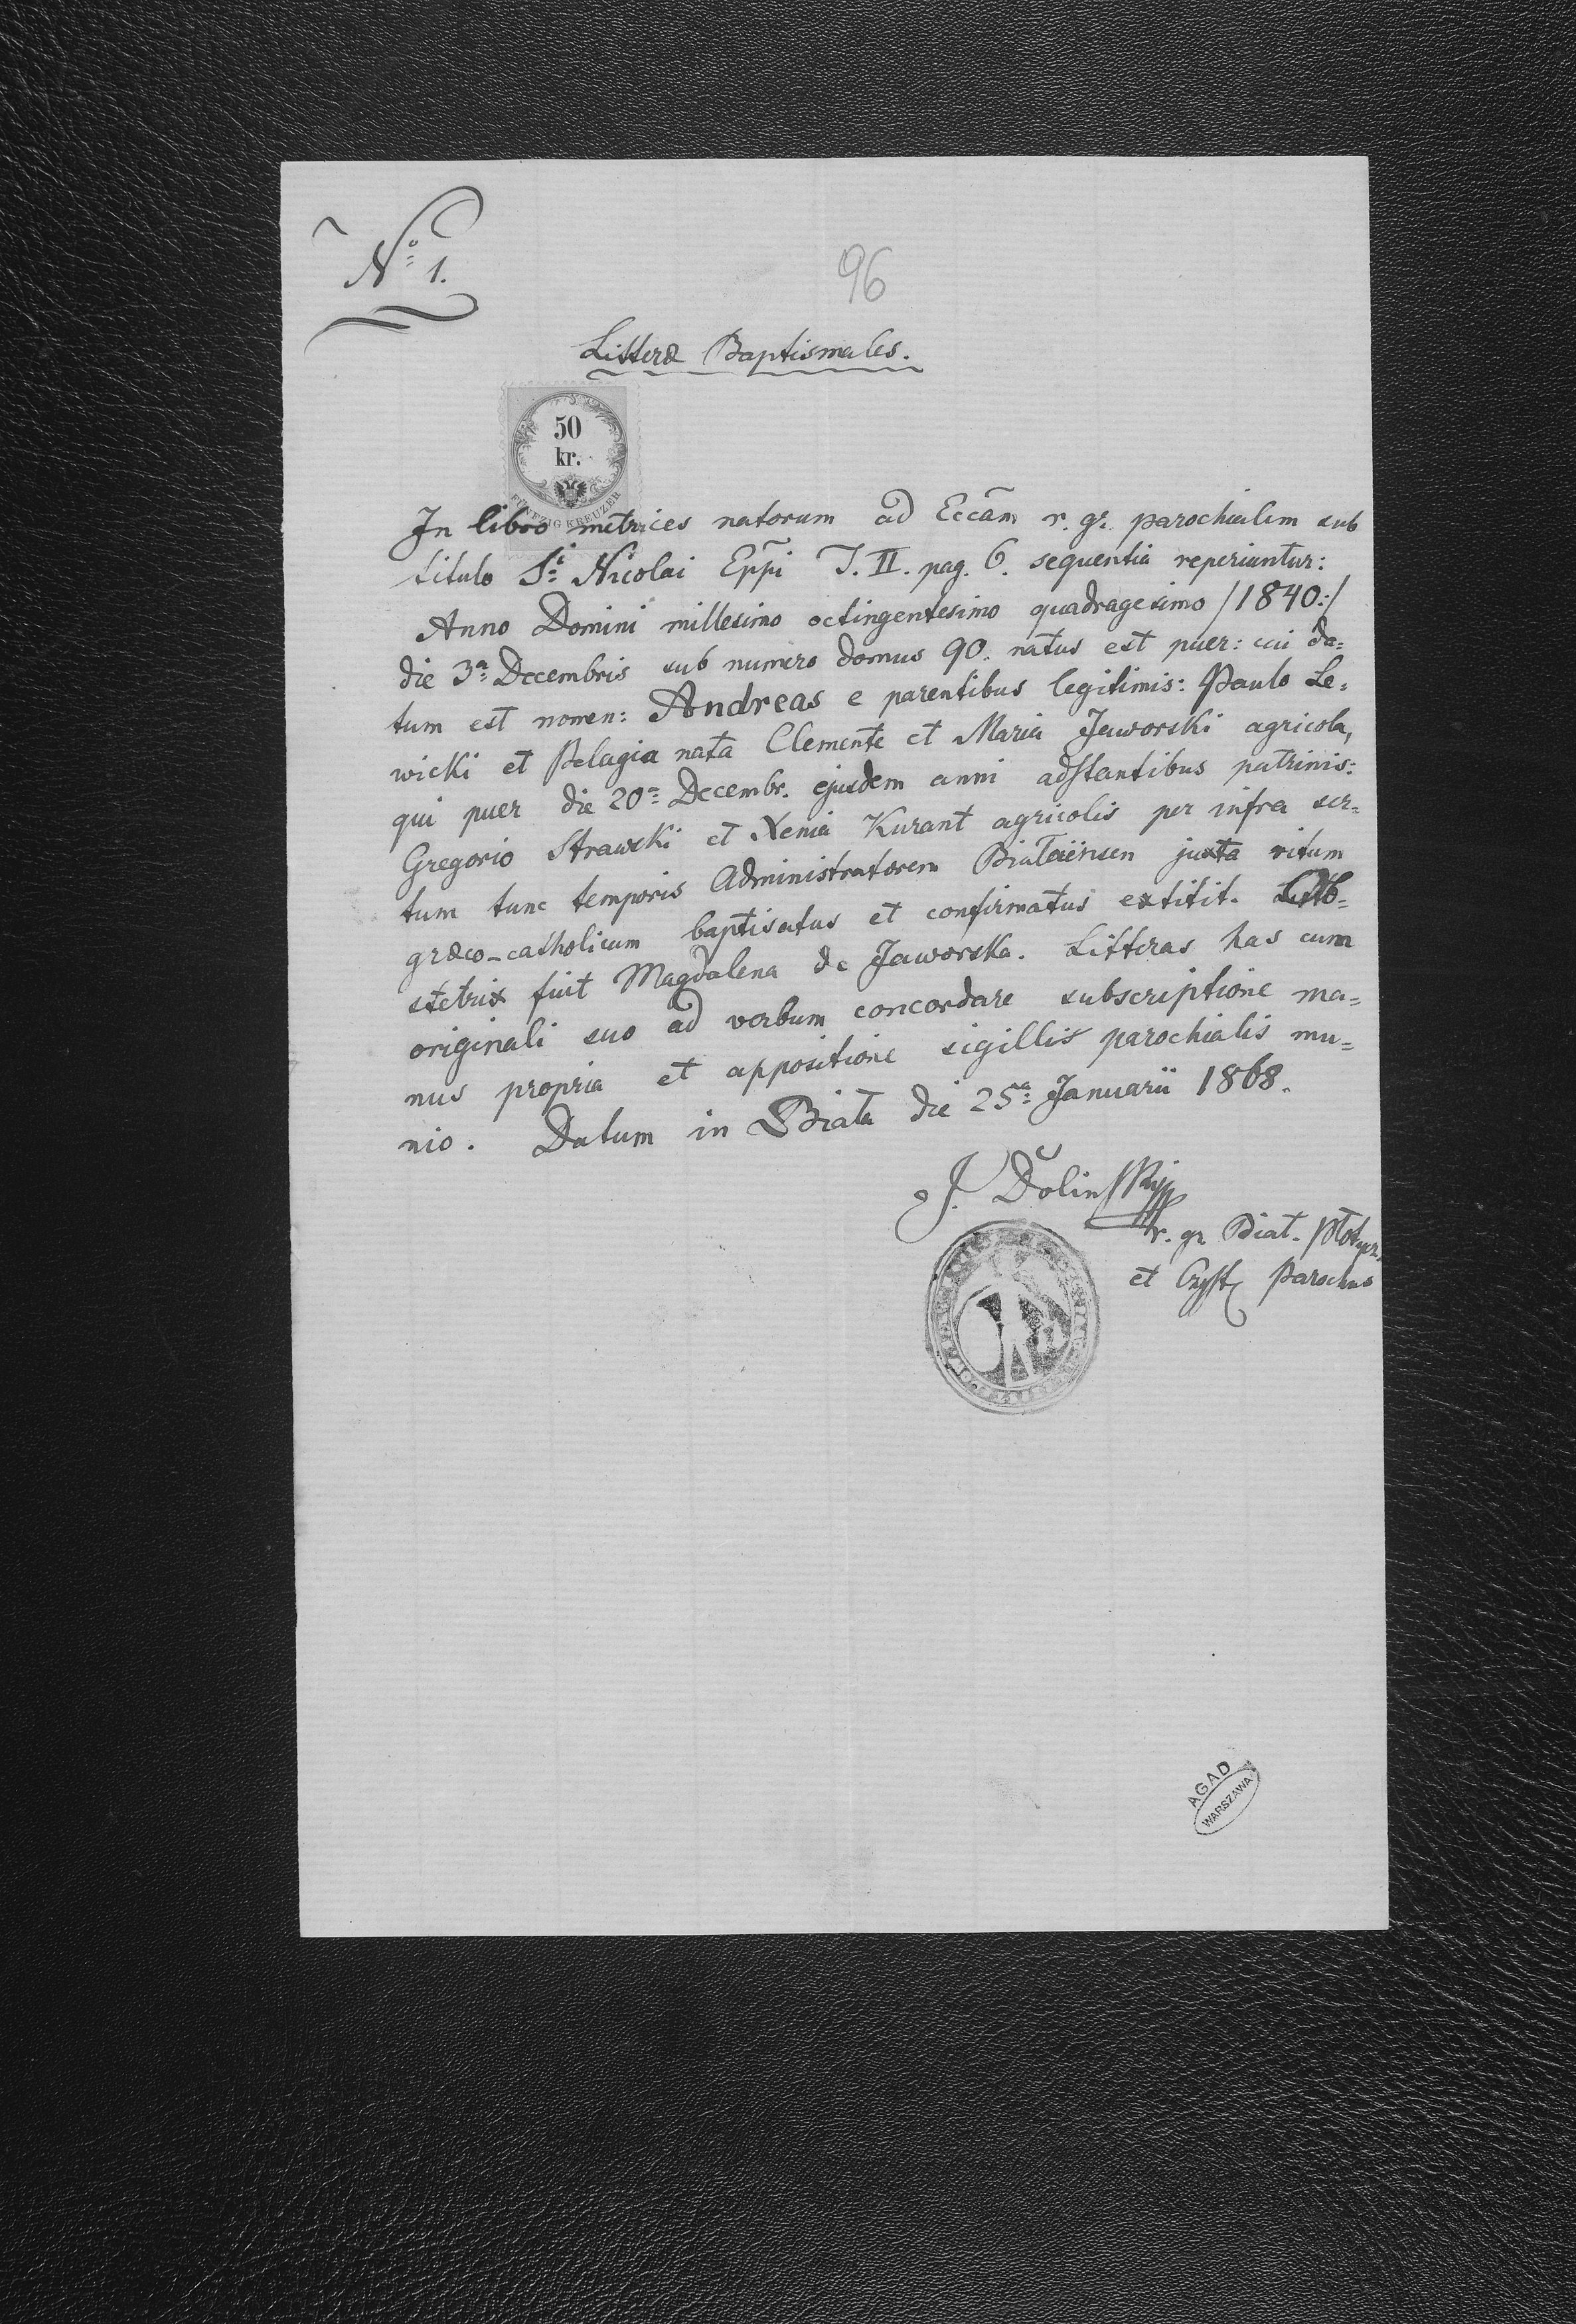 No 1.
96
Litteræ Baptismales.
50
kr.
FÜNFZIG KREUZER
In libro metrices natorum ad Eccãm r. gr. parochialem sub
titulo S:i Nicolai Epp̃i T. II. pag. 6. sequentia reperiuntur:
Anno Domini millesimo octingentesimo quadragesimo /1840:/
die 3a: Decembris sub numero domus 90. natus est puer: cui da=
tum est nomen: Andreas e parentibus legitimis: Paulo Le=
wicki et Pelagia nata Clemente et Maria Jaworski agricola,
qui puer die 20a: Decembr. ejusdem anni adstantibus patrinis:
Gregorio Strawski et Xenia Kurant agricolis per infra scr=
tum tunc temporis Administratorem Białaënsem juxta ritum
græco-catholicum baptisatus et confirmatus extitit. Ob=
stetrix fuit Magdalena de Jaworska. Litteras has cum
originali suo ad verbum concordare subscriptione ma=
nus propria et appositione sigillis parochialis mu=
nio. Datum in Biała die 25a: Januarii 1868.
J. Dolinskij
r. gr. Biał.
et Parochus
AGAD
WARSZAWA